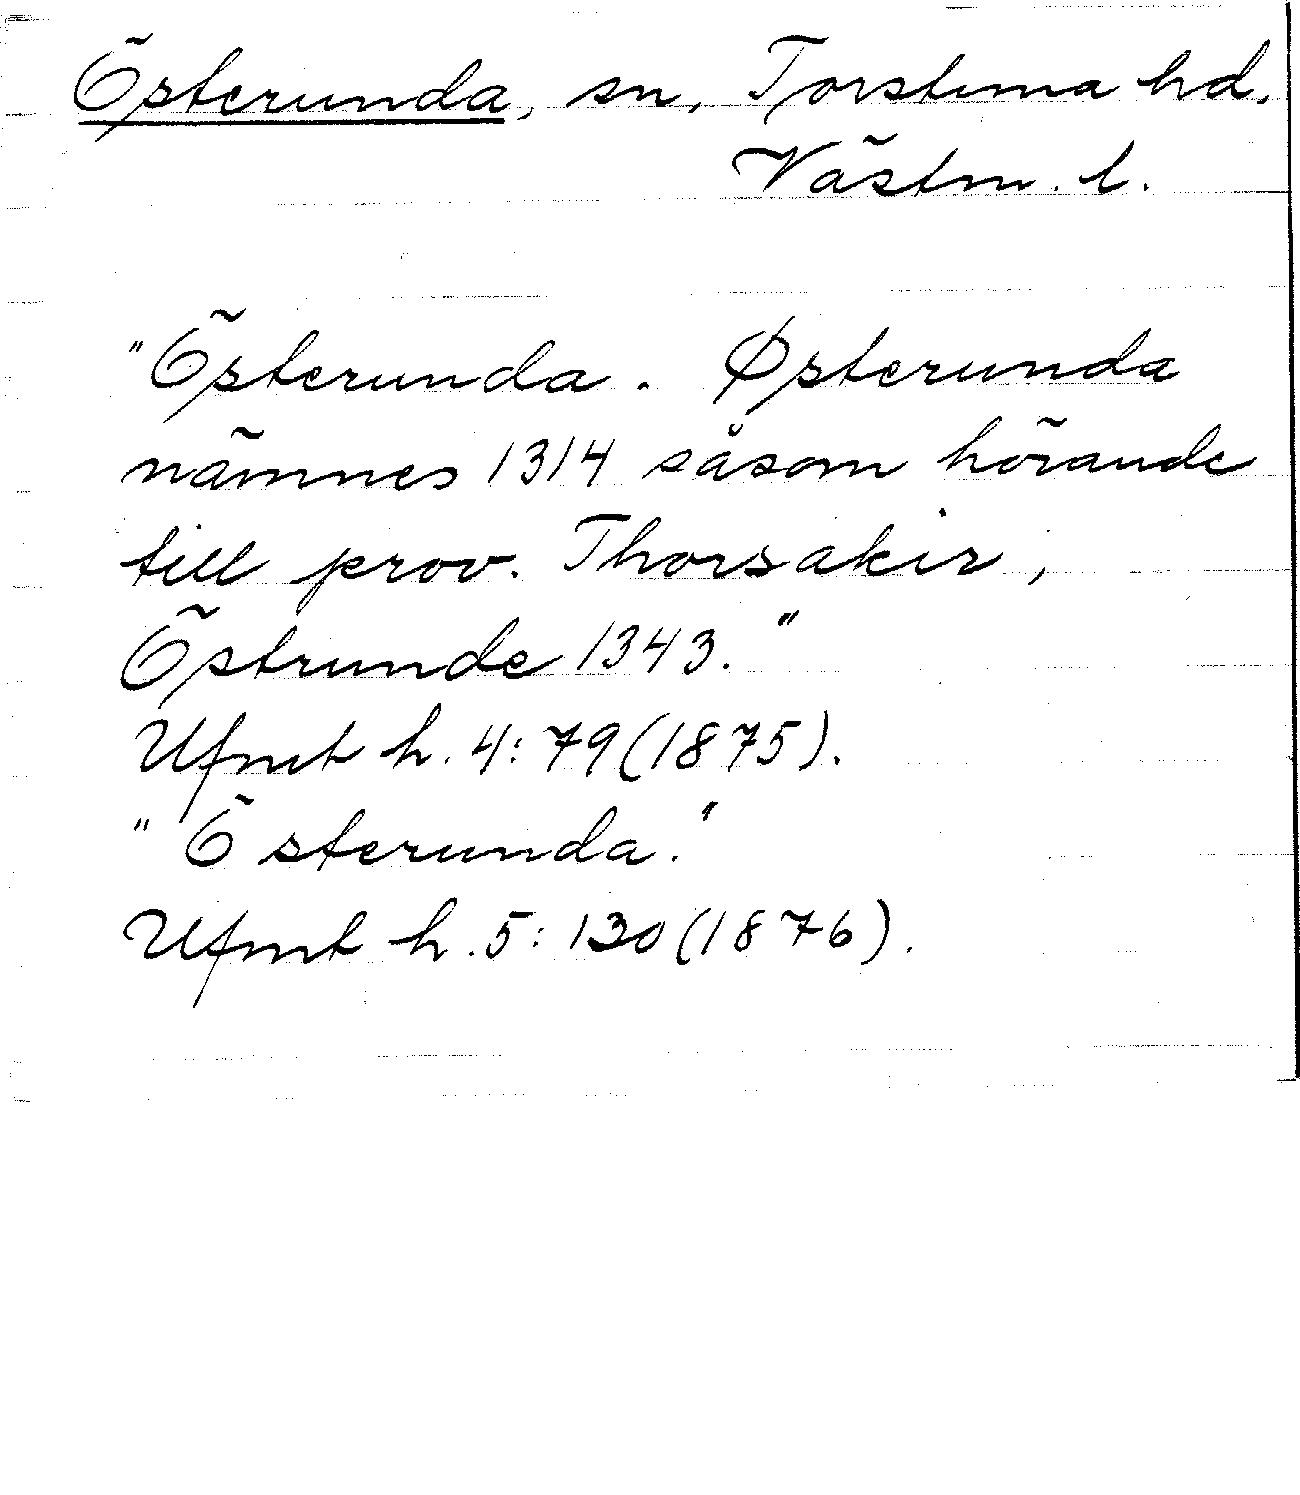 Österunda, sn, Torstuna hd.
Västm. l.
"Österunda. Østerunda
nämnes 1314 såsom hörande
till prov. Thorsakir,
Östrunde 1343."
Ufmt h. 4: 79 (1875).
"Österunda."
Ufmt h. 5: 130 (1876).